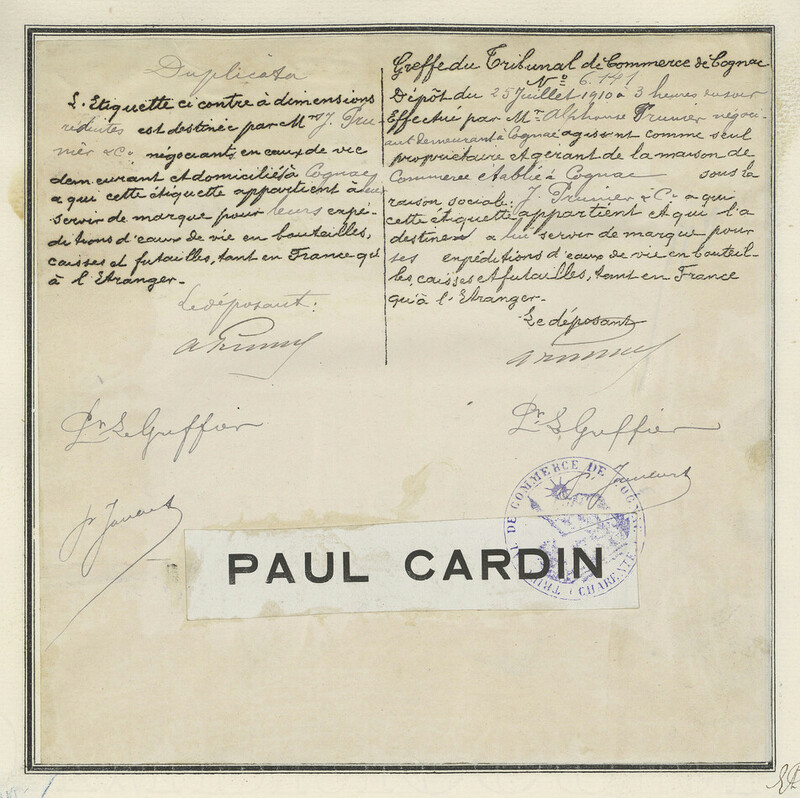 Duplicata
L'Etiquette ci contre à dimensions
réduites est destinée par Mrs J. Pru-
nier & Cie négociants en eaux de vie
demeurant et domiciliés à Cognac
a qui cette étiquette appartient à
servir de marque pour leurs expé-
ditions d'eaux de vie en bouteilles,
caisses et futailles, tant en France qu'
à l'Etranger.-
Le déposant:
A Prunier
Pr Le Greffier
Greffe du Tribunal de Commerce de Cognac
No 6.141
Dépôt du 25 Juillet 1910 à 3 heures du soir
Effectué par Mr Alphonse Prunier négoci-
ant demeurant à Cognac agissant comme seul
propriétaire et gérant de la maison de
Commerce établie à Cognac sous la
raison sociale: J. Prunier & Cie a qui
cette étiquette appartient et qui l'a
destinée a lui servir de marque pour
ses expéditions d'eaux de vie en bouteil-
les, caisses et futailles, tant en France
qu'à l'Etranger-
Le déposant
A Prunier
Pr Le Greffier
TRIBUNAL DE COMMERCE DE COGNAC
CHARENTE
PAUL CARDIN